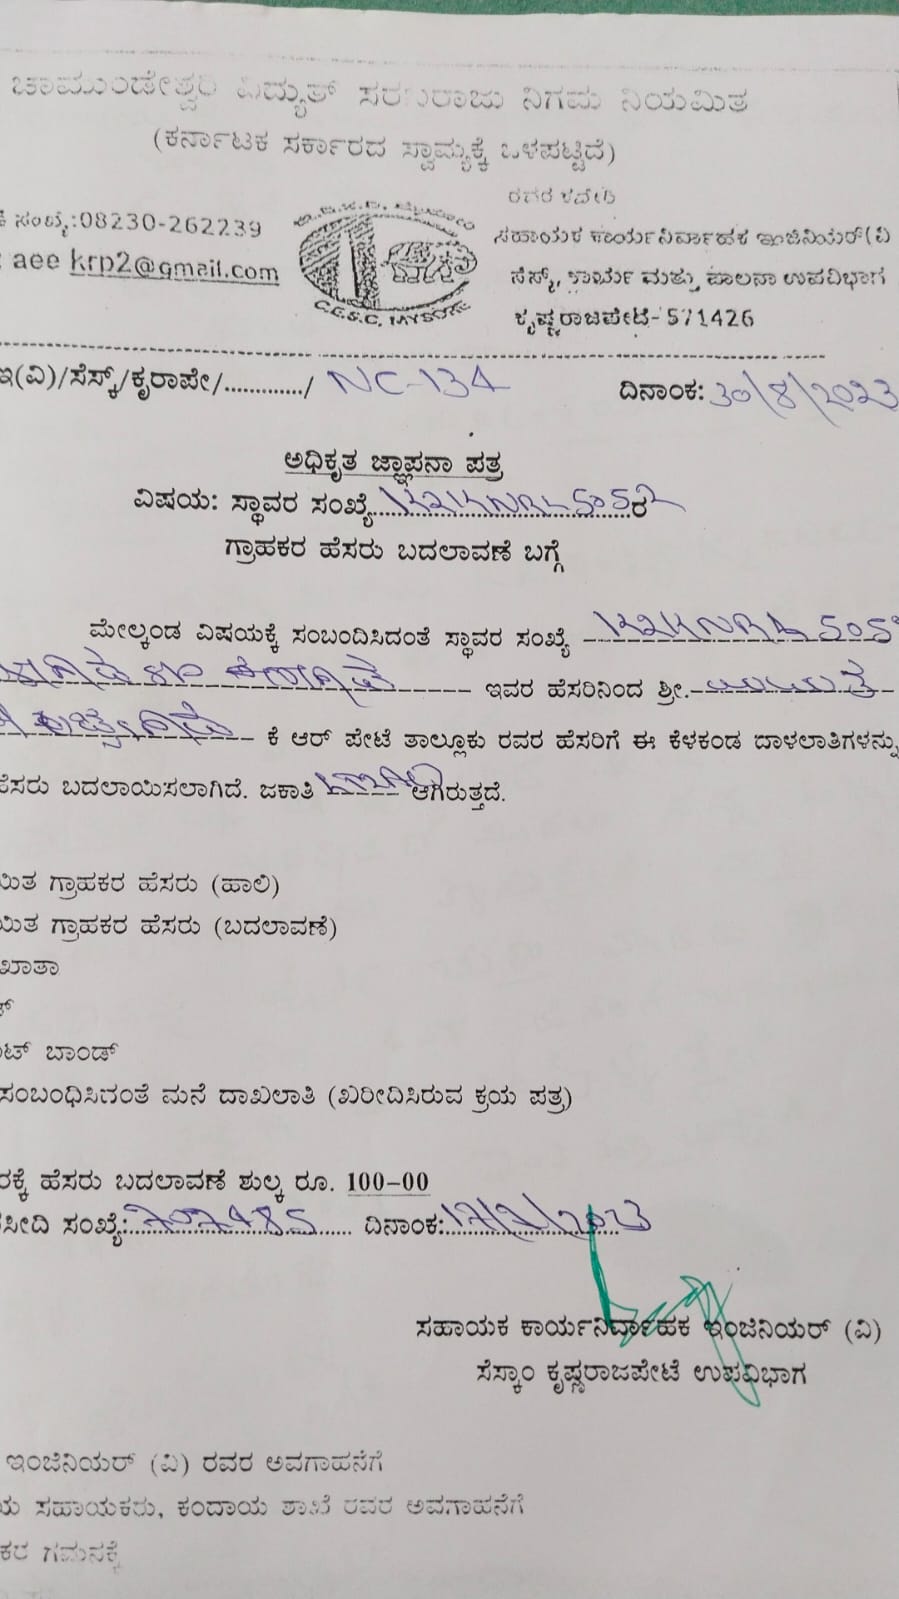 ಚಾಮುಂಡೇಶ್ವರಿ ವಿದ್ಯುತ್ ಸರಬರಾಜು ನಿಗಮ ನಿಯಮಿತ
(ಕರ್ನಾಟಕ ಸರ್ಕಾರದ ಸ್ವಾಮ್ಯಕ್ಕೆ ಒಳಪಟ್ಟಿದೆ)
ರವರ ಕಛೇರಿ
ಸಂಖ್ಯೆ:08230-262239
ಸಹಾಯಕ ಕಾರ್ಯನಿರ್ವಾಹಕ ಇಂಜಿನಿಯರ್(ವಿ
: aee krp2@gmail.com
ಸೆಸ್ಕ್, ಕಾರ್ಯ ಮತ್ತು ಪಾಲನಾ ಉಪವಿಭಾಗ
C.E.S.C. MYSORE
ಕೃಷ್ಣರಾಜಪೇಟೆ-571426
ಇ(ವಿ)/ಸೆಸ್ಕ್/ಕೃರಾಪೇ/............/ NC-134 ದಿನಾಂಕ: 30/8/2023
ಅಧಿಕೃತ ಜ್ಞಾಪನಾ ಪತ್ರ
ವಿಷಯ: ಸ್ಥಾವರ ಸಂಖ್ಯೆ ರ
ಗ್ರಾಹಕರ ಹೆಸರು ಬದಲಾವಣೆ ಬಗ್ಗೆ
ಮೇಲ್ಕಂಡ ವಿಷಯಕ್ಕೆ ಸಂಬಂದಿಸಿದಂತೆ ಸ್ಥಾವರ ಸಂಖ್ಯೆ
ಇವರ ಹೆಸರಿನಿಂದ ಶ್ರೀ.
ಕೆ ಆರ್ ಪೇಟೆ ತಾಲ್ಲೂಕು ರವರ ಹೆಸರಿಗೆ ಈ ಕೆಳಕಂಡ ದಾಳಲಾತಿಗಳನ್ನು
ಹೆಸರು ಬದಲಾಯಿಸಲಾಗಿದೆ. ಜಕಾತಿ ಆಗಿರುತ್ತದೆ.
ಗ್ರಾಹಕರ ಹೆಸರು (ಹಾಲಿ)
ಗ್ರಾಹಕರ ಹೆಸರು (ಬದಲಾವಣೆ)
ಖಾತಾ
ಬಾಂಡ್
ಸಂಬಂಧಿಸಿದಂತೆ ಮನೆ ದಾಖಲಾತಿ (ಖರೀದಿಸಿರುವ ಕ್ರಯ ಪತ್ರ)
ಹೆಸರು ಬದಲಾವಣೆ ಶುಲ್ಕ ರೂ. 100-00
ಸಂಖ್ಯೆ: ದಿನಾಂಕ:
ಸಹಾಯಕ ಕಾರ್ಯನಿರ್ವಾಹಕ ಇಂಜಿನಿಯರ್ (ವಿ)
ಸೆಸ್ಕಾಂ ಕೃಷ್ಣರಾಜಪೇಟೆ ಉಪವಿಭಾಗ
ಇಂಜಿನಿಯರ್ (ವಿ) ರವರ ಅವಗಾಹನೆಗೆ
ಸಹಾಯಕರು, ಕಂದಾಯ ಶಾಖೆ ರವರ ಅವಗಾಹನೆಗೆ
ಗಮನಕ್ಕೆ